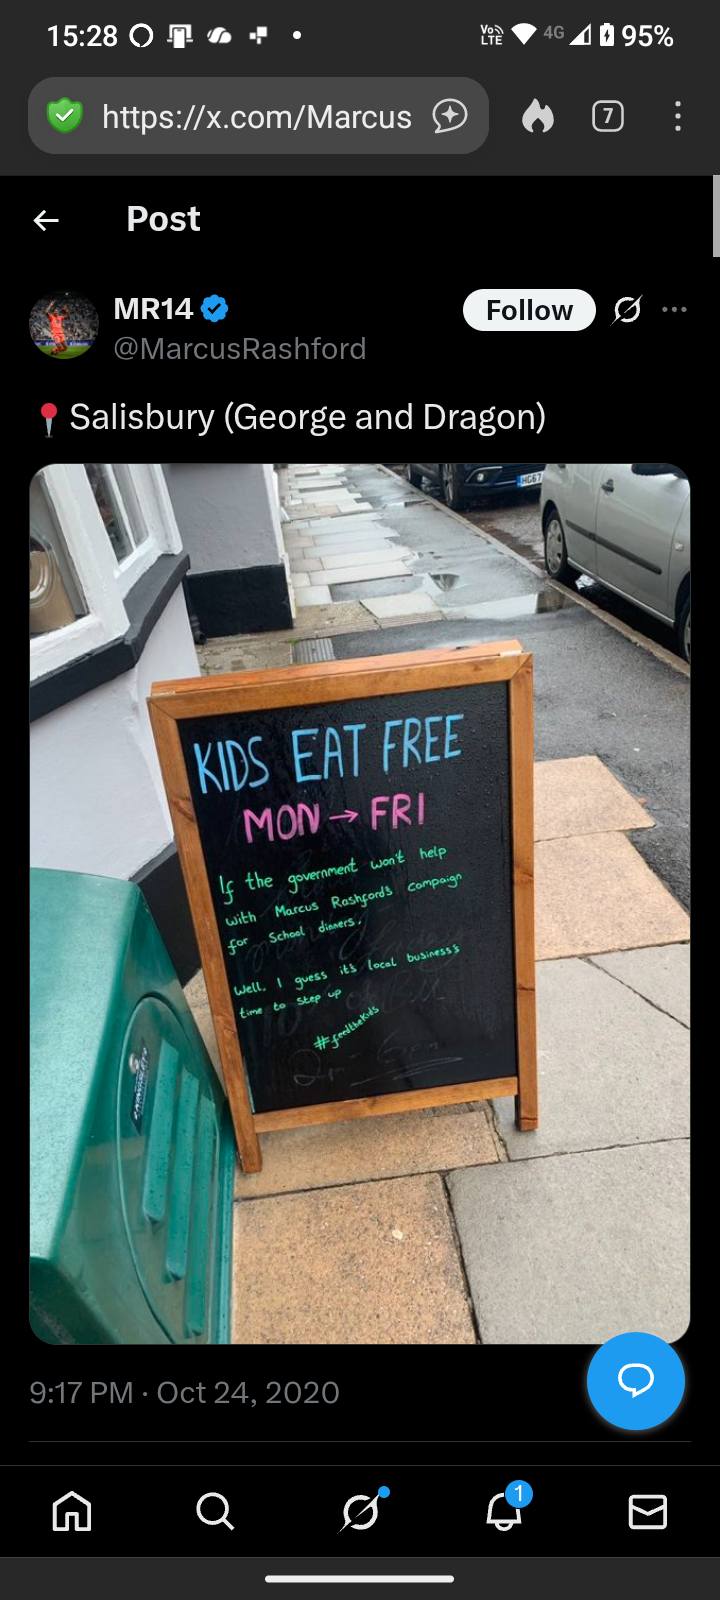 15:28
Vo)) LTE
4G
95%
https://x.com/Marcus
7
Post
MR14
Follow
@MarcusRashford
📍Salisbury (George and Dragon)
HG67
KIDS EAT FREE
MON → FRI
If the government won't help
with Marcus Rashford's campaign
for School dinners.
Well, I guess it's local business's
time to step up
#feedthekids
9:17 PM · Oct 24, 2020
1